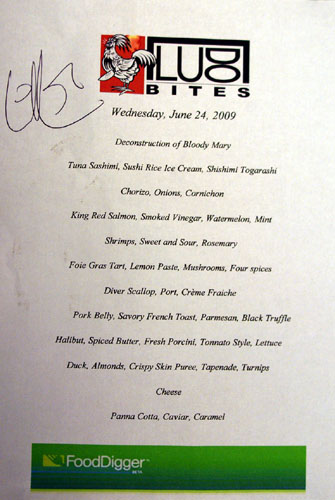 LUDO
BITES
Wednesday, June 24, 2009
Deconstruction of Bloody Mary
Tuna Sashimi, Sushi Rice Ice Cream, Shishimi Togarashi
Chorizo, Onions, Cornichon
King Red Salmon, Smoked Vinegar, Watermelon, Mint
Shrimps, Sweet and Sour, Rosemary
Foie Gras Tart, Lemon Paste, Mushrooms, Four spices
Diver Scallop, Port, Crème Fraiche
Pork Belly, Savory French Toast, Parmesan, Black Truffle
Halibut, Spiced Butter, Fresh Porcini, Tonnato Style, Lettuce
Duck, Almonds, Crispy Skin Puree, Tapenade, Turnips
Cheese
Panna Cotta, Caviar, Caramel
FoodDigger
BETA